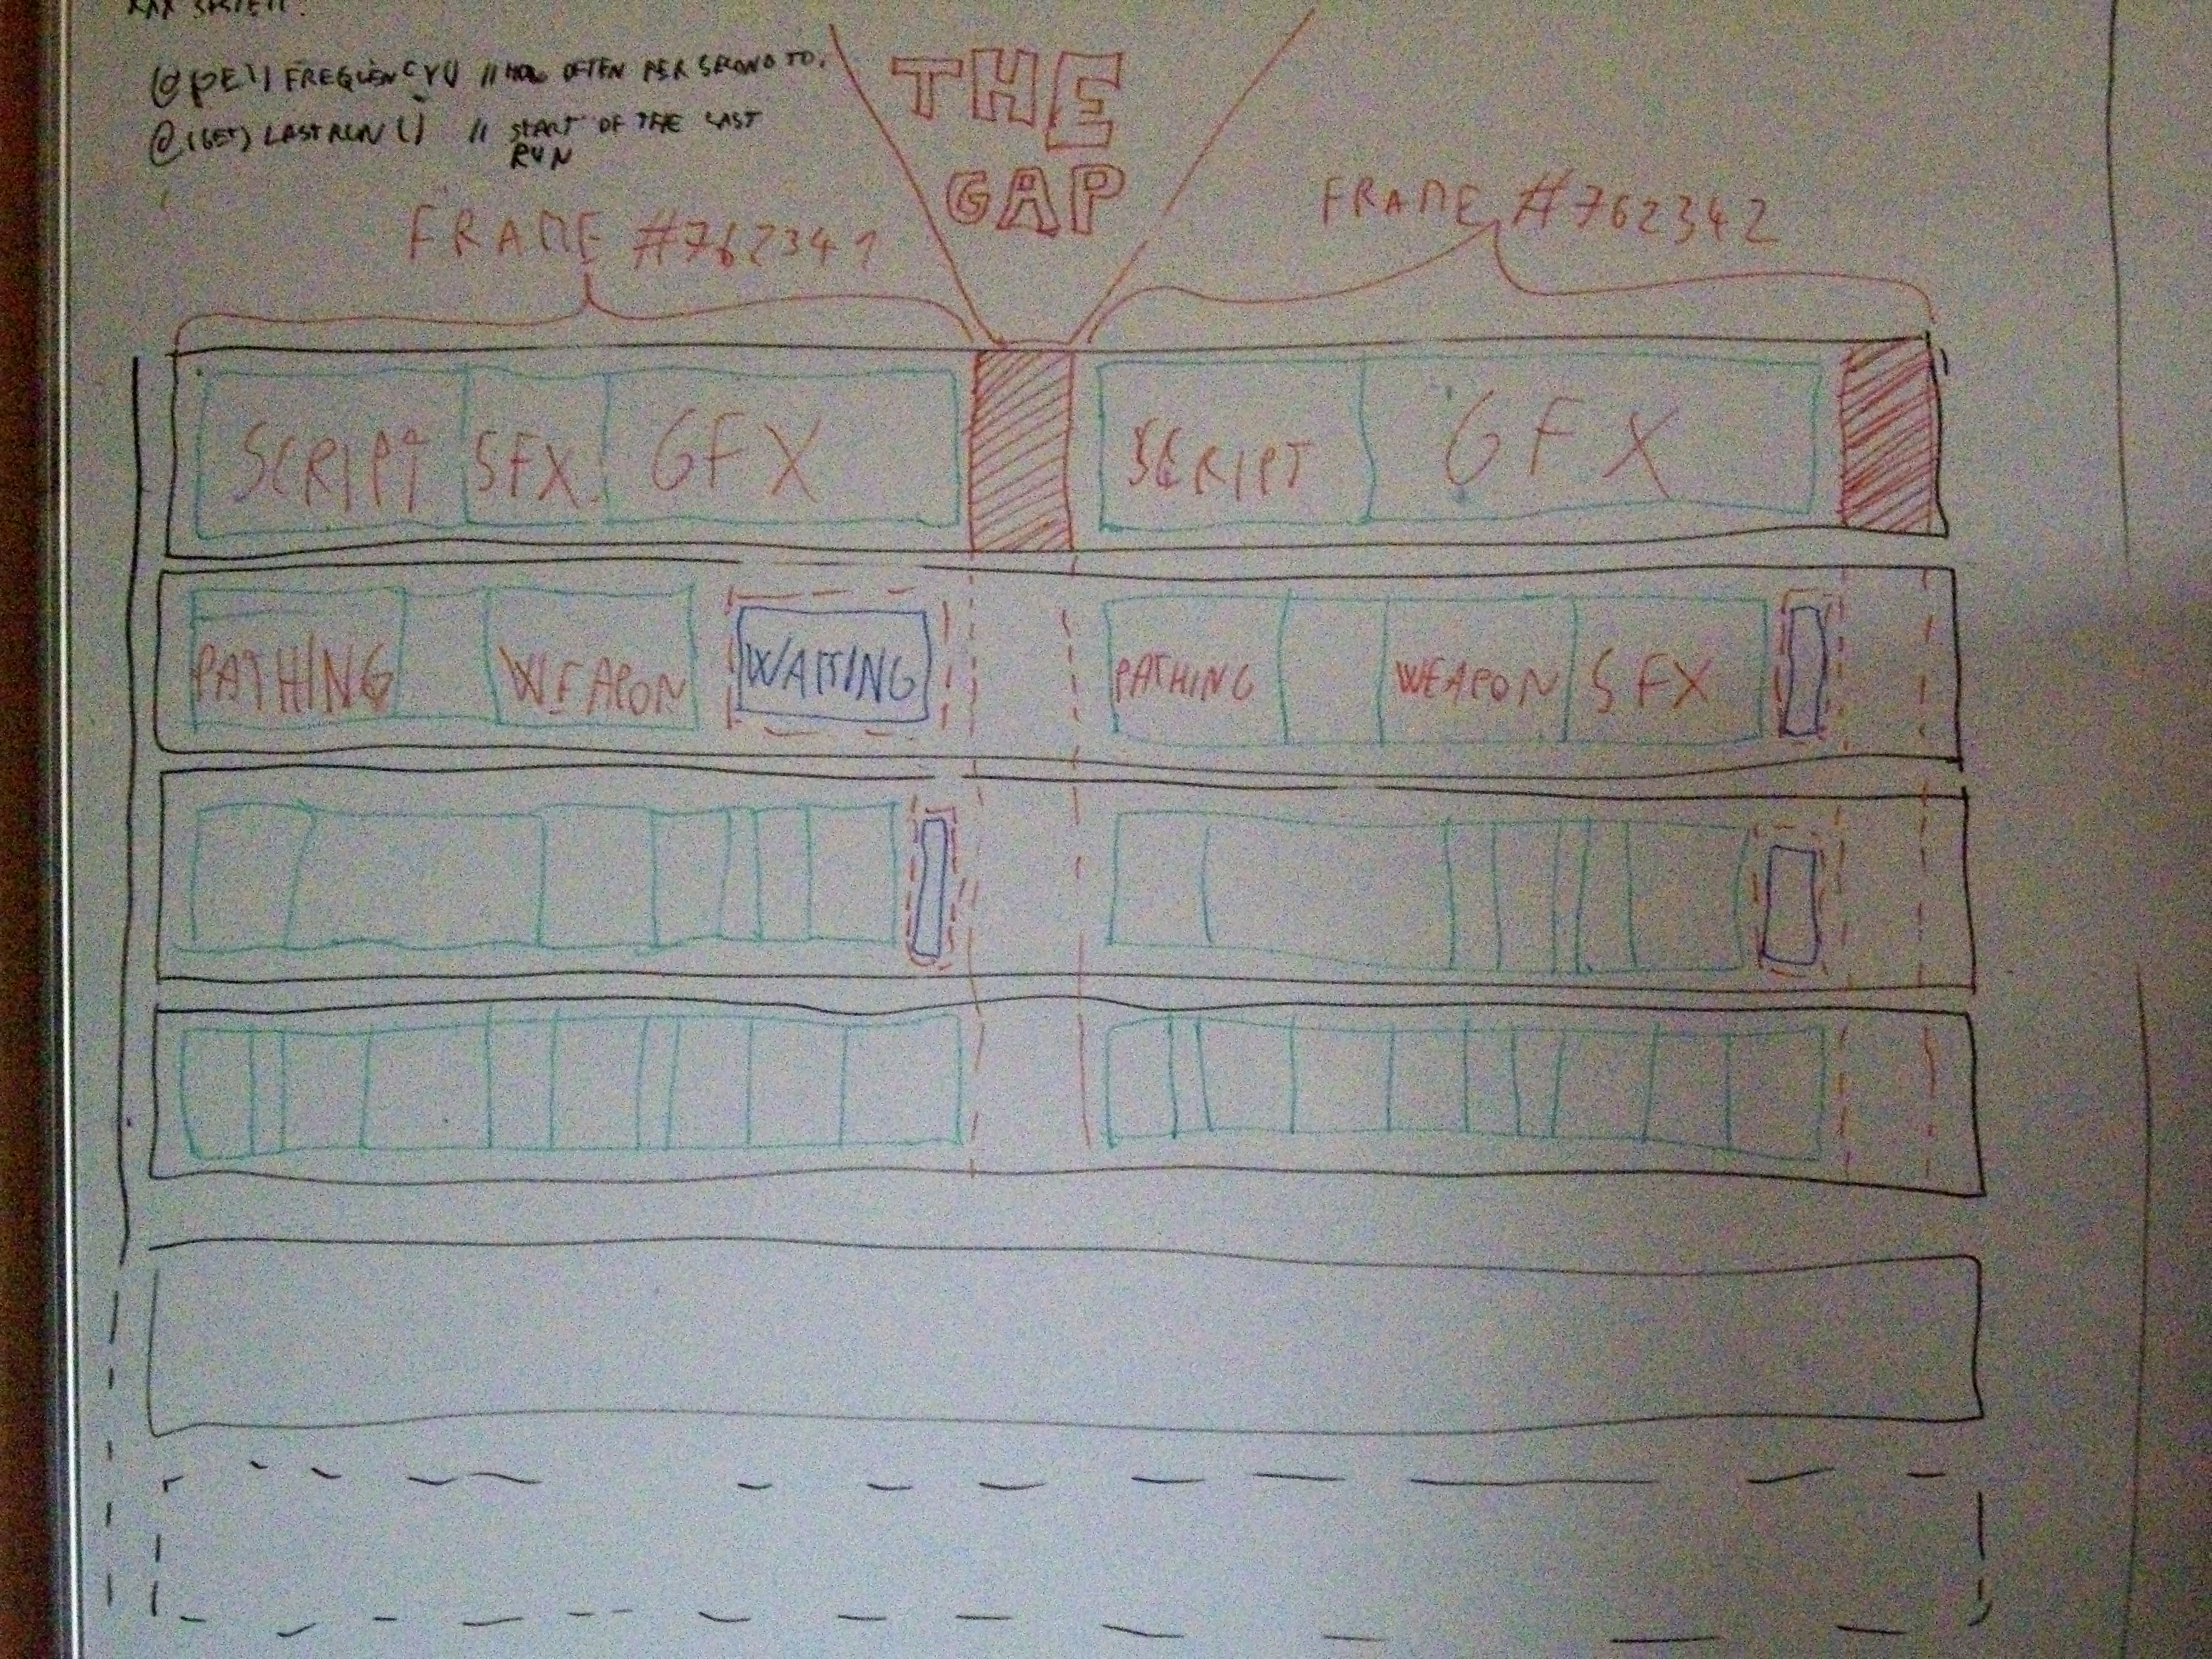 SYSTEM.
FREQUENCY() // HOW OFTEN PER SECOND TO.
@(GET) LASTRUN() // START OF THE LAST
RUN
THE
GAP
FRAME #762341
FRAME #762342
SCRIPT SFX GFX
SCRIPT GFX
PATHING WEAPON WAITING
PATHING WEAPON SFX